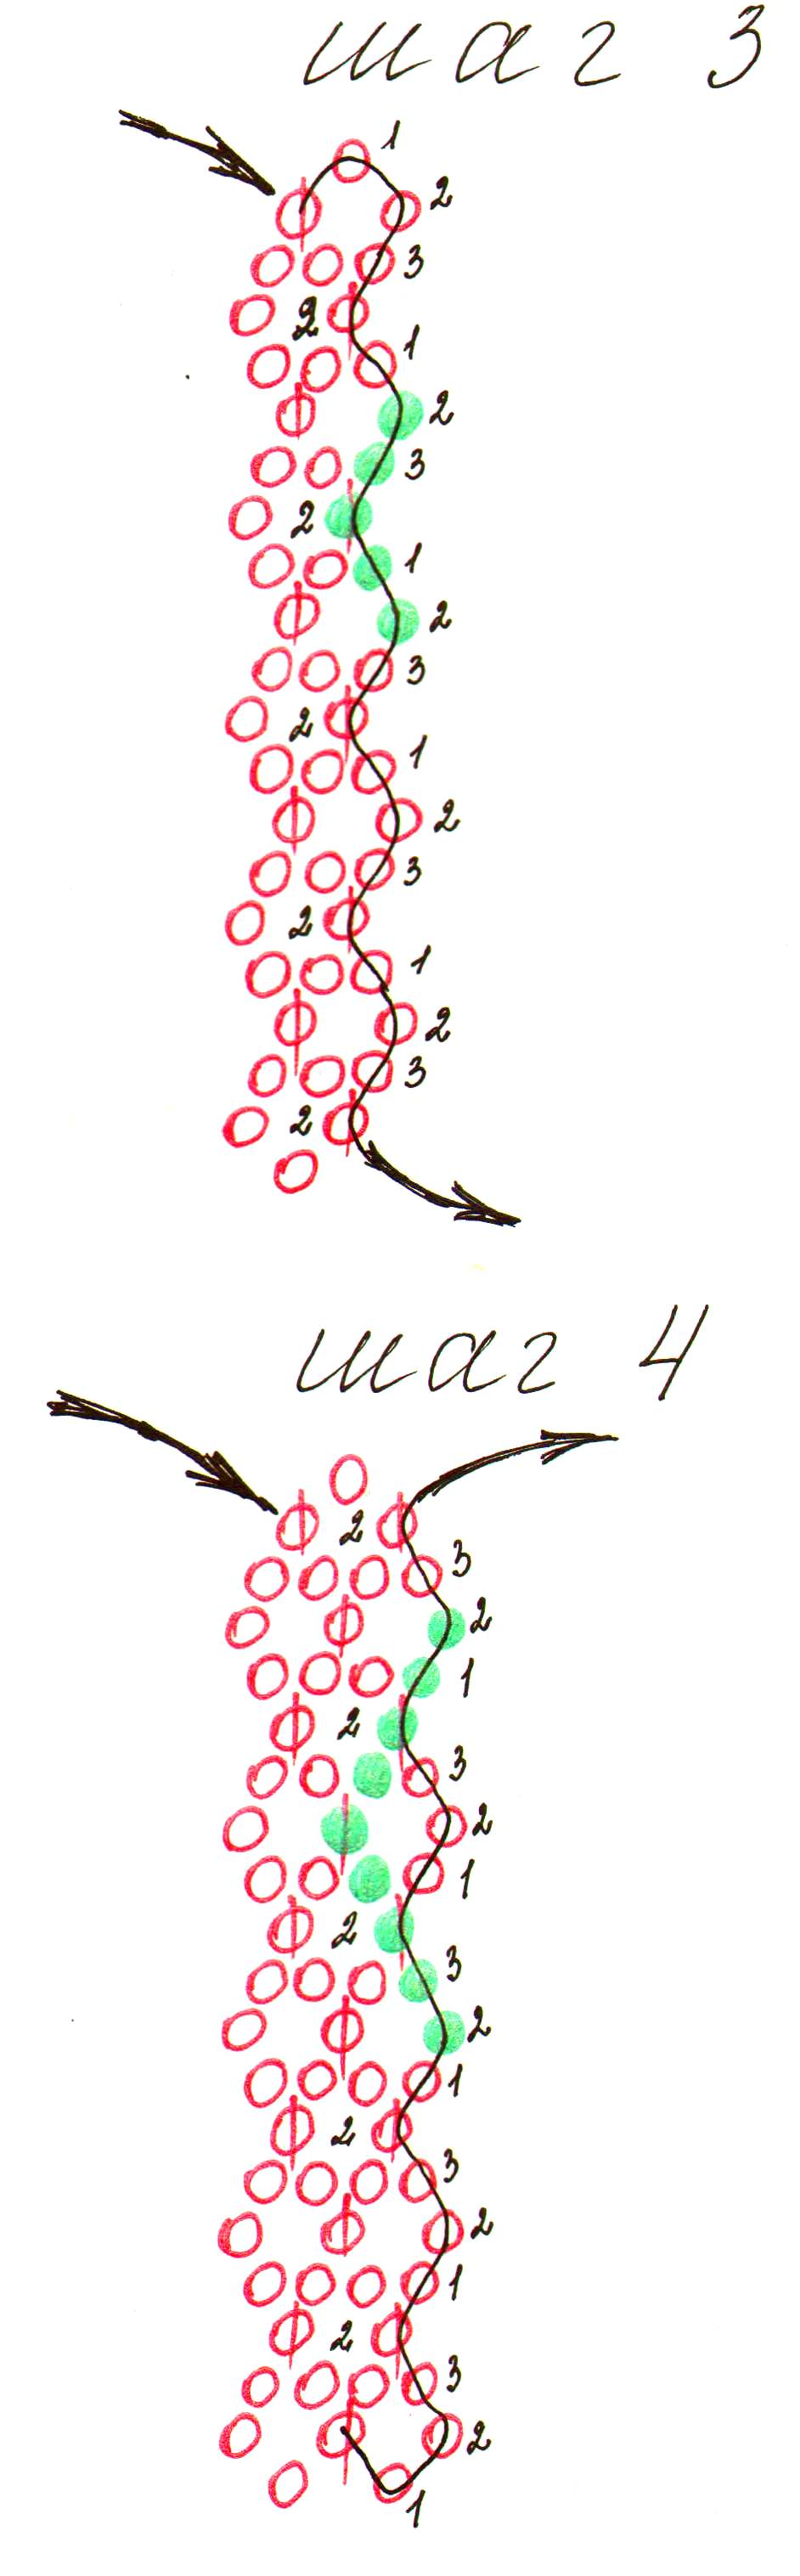 шаг 3
1
2
3
2
1
2
3
2
1
2
3
2
1
2
3
2
1
2
3
2
шаг 4
2
3
2
1
2
3
2
1
2
3
2
1
2
3
2
1
2
3
2
1